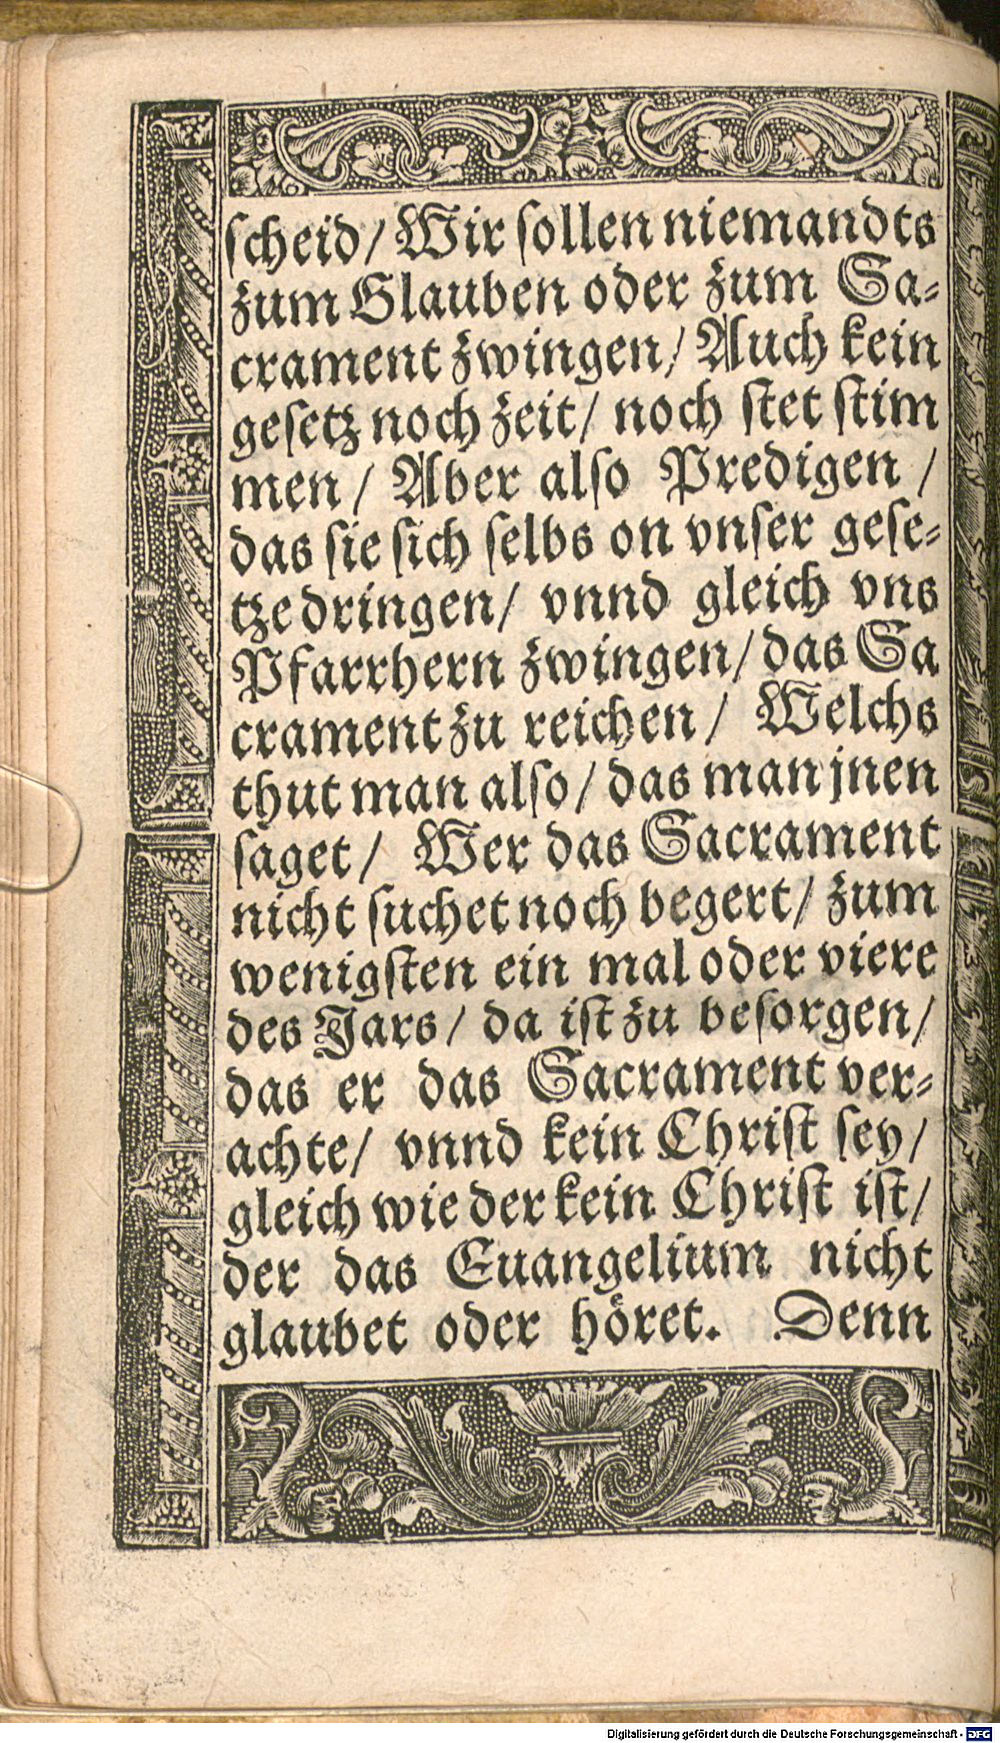 scheid / Wir sollen niemandts
zum Glauben oder zum Sa-
crament zwingen / Auch kein
gesetz noch zeit / noch stet stim
men / Aber also Predigen /
das sie sich selbs on vnser gese-
tze dringen / vnnd gleich vns
Pfarrhern zwingen / das Sa
crament zu reichen / Welchs
thut man also / das man jnen
saget / Wer das Sacrament
nicht suchet noch begert / zum
wenigsten ein mal oder viere
des Jars / da ist zu besorgen /
das er das Sacrament ver-
achte / vnnd kein Christ sey /
gleich wie der kein Christ ist /
der das Euangelium nicht
glaubet oder höret. Denn
Digitalisierung gefördert durch die Deutsche Forschungsgemeinschaft - DFG